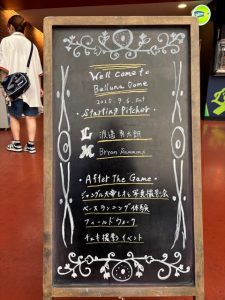 Well Come to
Belluna Dome
2025.9.6.sat
・Starting Pitcher・
L 渡邉 勇太朗
M Bryan Sammons
・After The Game・
ジャングル大帝レオと写真撮影会
ベースランニング体験
フィールドウォーク
チェキ撮影イベント